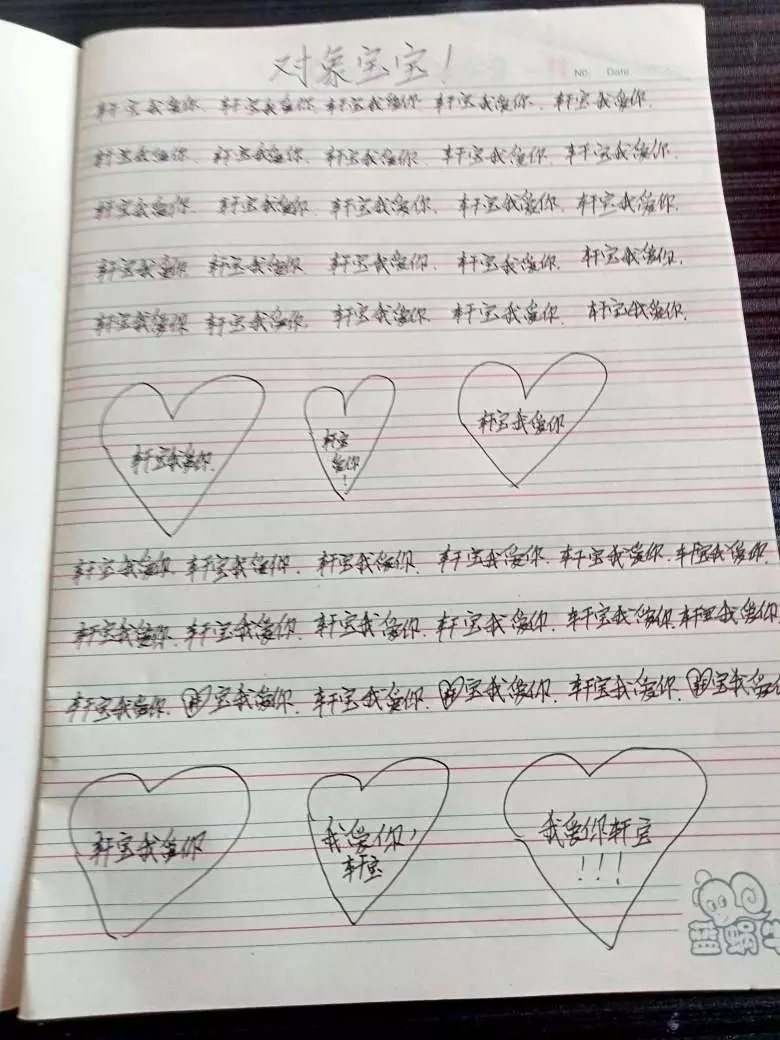 对象宝宝！
No. Date
轩宝我爱你. 轩宝我爱你. 轩宝我爱你. 轩宝我爱你. 轩宝我爱你.
轩宝我爱你. 轩宝我爱你. 轩宝我爱你. 轩宝我爱你. 轩宝我爱你.
轩宝我爱你. 轩宝我爱你. 轩宝我爱你. 轩宝我爱你. 轩宝我爱你.
轩宝我爱你 轩宝我爱你 轩宝我爱你. 轩宝我爱你. 轩宝我爱你.
轩宝我爱你 轩宝我爱你. 轩宝我爱你. 轩宝我爱你. 轩宝我爱你.
轩宝我爱你.
轩宝
爱你
!
轩宝我爱你
轩宝我爱你. 轩宝我爱你. 轩宝我爱你. 轩宝我爱你. 轩宝我爱你. 轩宝我爱你.
轩宝我爱你. 轩宝我爱你. 轩宝我爱你. 轩宝我爱你. 轩宝我爱你. 轩宝我爱你.
轩宝我爱你. 轩宝我爱你. 轩宝我爱你. 轩宝我爱你. 轩宝我爱你. 轩宝我爱你
轩宝我爱你
我爱你,
轩宝
我爱你轩宝
!!!
蓝蜗